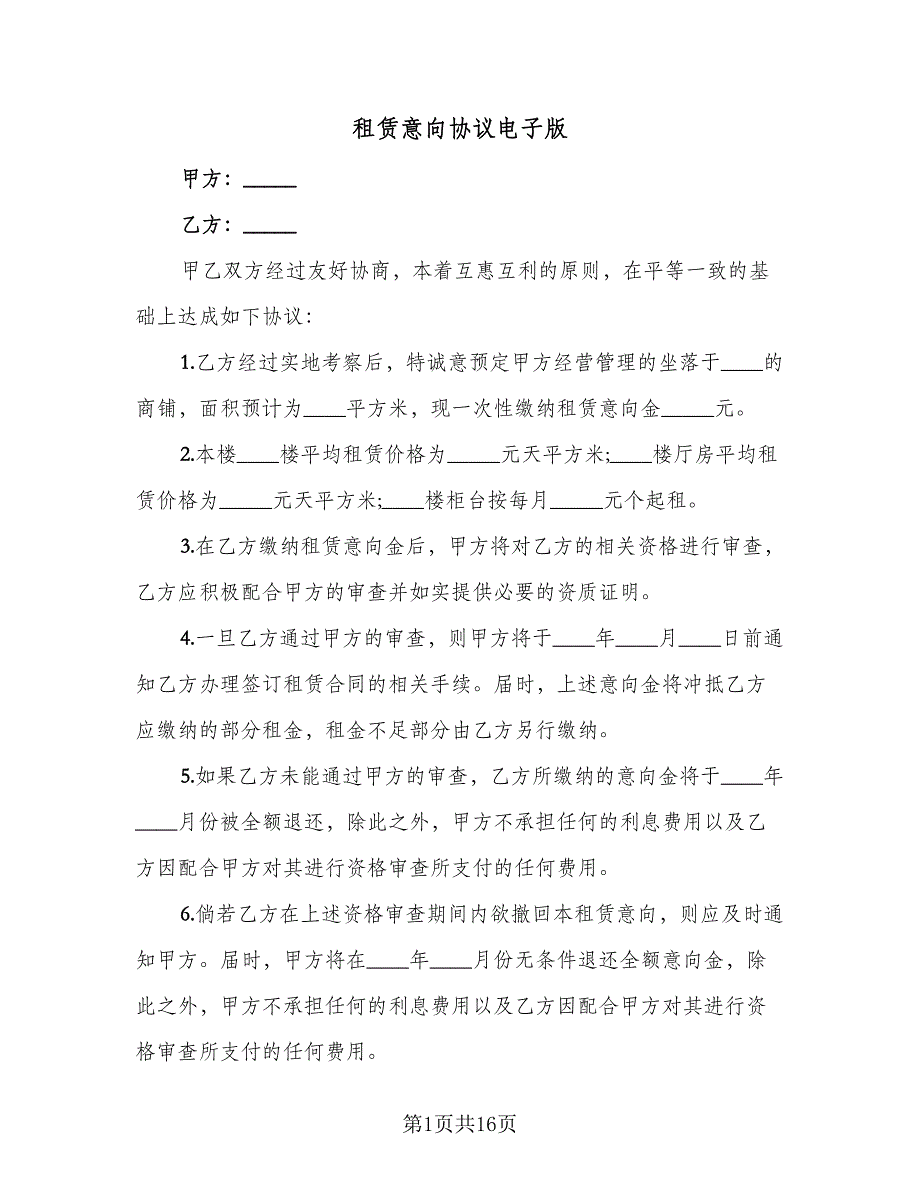 租赁意向协议电子版
甲方：_____
乙方：_____
甲乙双方经过友好协商，本着互惠互利的原则，在平等一致的基
础上达成如下协议：
1.乙方经过实地考察后，特诚意预定甲方经营管理的坐落于____的
商铺，面积预计为____平方米，现一次性缴纳租赁意向金_____元。
2.本楼____楼平均租赁价格为_____元天平方米;____楼厅房平均租
赁价格为_____元天平方米;____楼柜台按每月_____元个起租。
3.在乙方缴纳租赁意向金后，甲方将对乙方的相关资格进行审查，
乙方应积极配合甲方的审查并如实提供必要的资质证明。
4.一旦乙方通过甲方的审查，则甲方将于____年____月____日前通
知乙方办理签订租赁合同的相关手续。届时，上述意向金将冲抵乙方
应缴纳的部分租金，租金不足部分由乙方另行缴纳。
5.如果乙方未能通过甲方的审查，乙方所缴纳的意向金将于____年
____月份被全额退还，除此之外，甲方不承担任何的利息费用以及乙
方因配合甲方对其进行资格审查所支付的任何费用。
6.倘若乙方在上述资格审查期间内欲撤回本租赁意向，则应及时通
知甲方。届时，甲方将在____年____月份无条件退还全额意向金，除
此之外，甲方不承担任何的利息费用以及乙方因配合甲方对其进行资
格审查所支付的任何费用。
第1页共16页